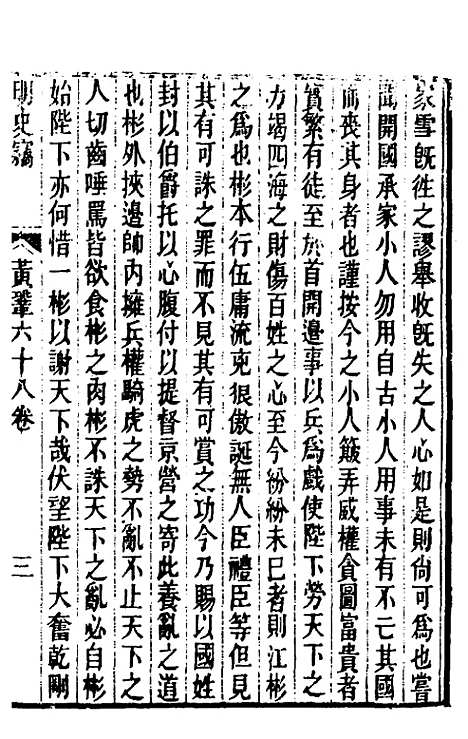 家雪既徃之謬舉收既失之人心如是則尙可爲也嘗
聞開國承家小人勿用自古小人用事未有不亡其國
而喪其身者也謹按今之小人簸弄威權貪圖富貴者
實繁有徒至於首開邊事以兵爲戲使陛下勞天下之
力竭四海之財傷百姓之心至今紛紛未巳者則江彬
之爲也彬本行伍庸流兇很傲誕無人臣禮臣等但見
其有可誅之罪而不見其有可賞之功今乃賜以國姓
封以伯爵托以心腹付以提督京營之寄此養亂之道
也彬外挾邊帥內擁兵權騎虎之勢不亂不止天下之
人切齒唾罵皆欲食彬之肉彬不誅天下之亂必自彬
始陛下亦何惜一彬以謝天下哉伏望陛下大奮乾剛
明史竊 黃鞏六十八卷 三